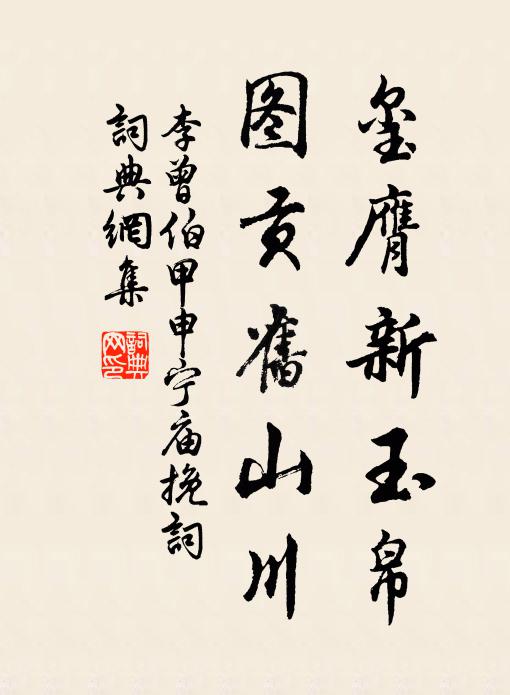 玺膺新玉帛
图贡舊山川
李曾伯甲申宁庙挽詞
詞典網集
詞典
网印